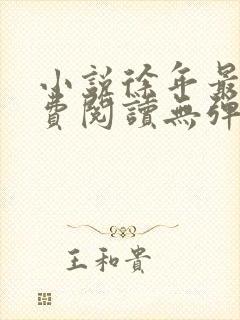 小說徐年最
費閱讀無彈
王和貴